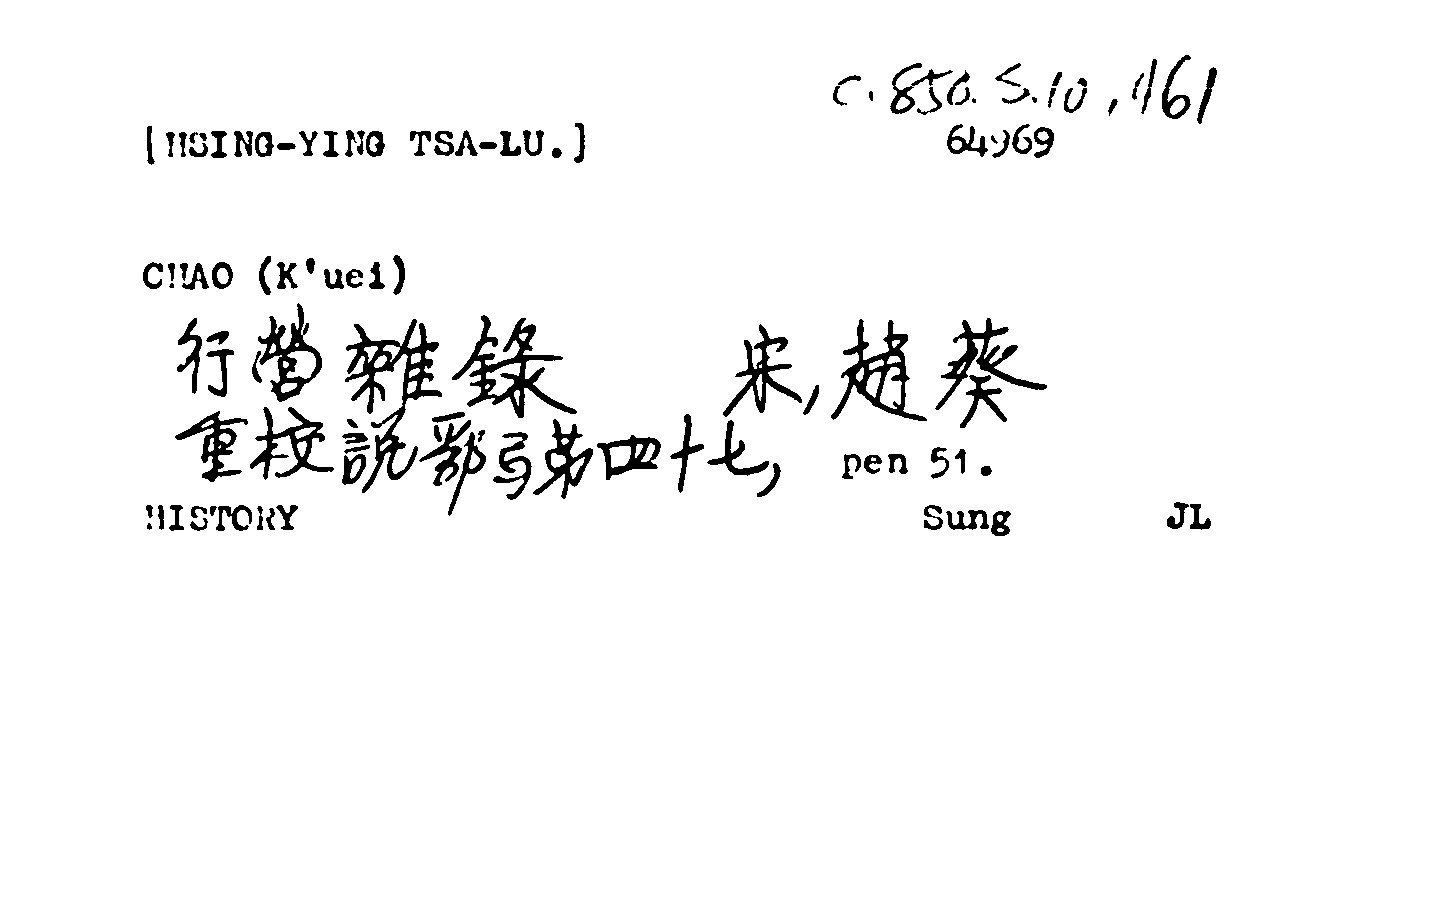 C.850.S.10,161
[HSING-YING TSA-LU.]
64969
CHAO (K'uei)
行營雜錄 宋,趙葵
重校説郛弓第四十七, pen 51.
HISTORY Sung JL